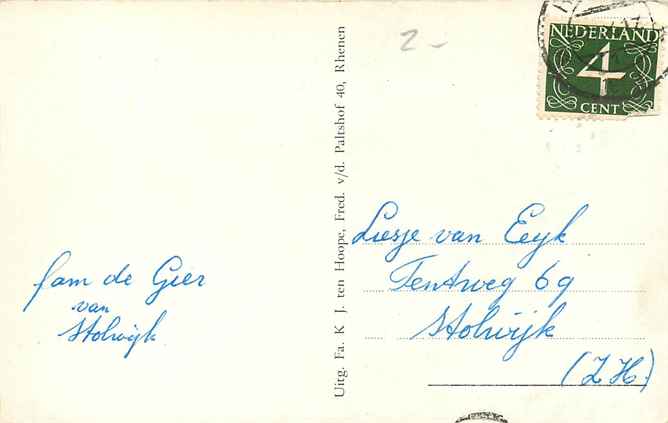 2-
NEDERLAND
4
CENT
Uitg. Fa. K J. ten Hoope, Fred. v/d. Paltshof 40, Rhenen
fam de Gier
van
Stolwijk
Liesje van Eeyk
Tentweg 69
Stolwijk
(Z H)